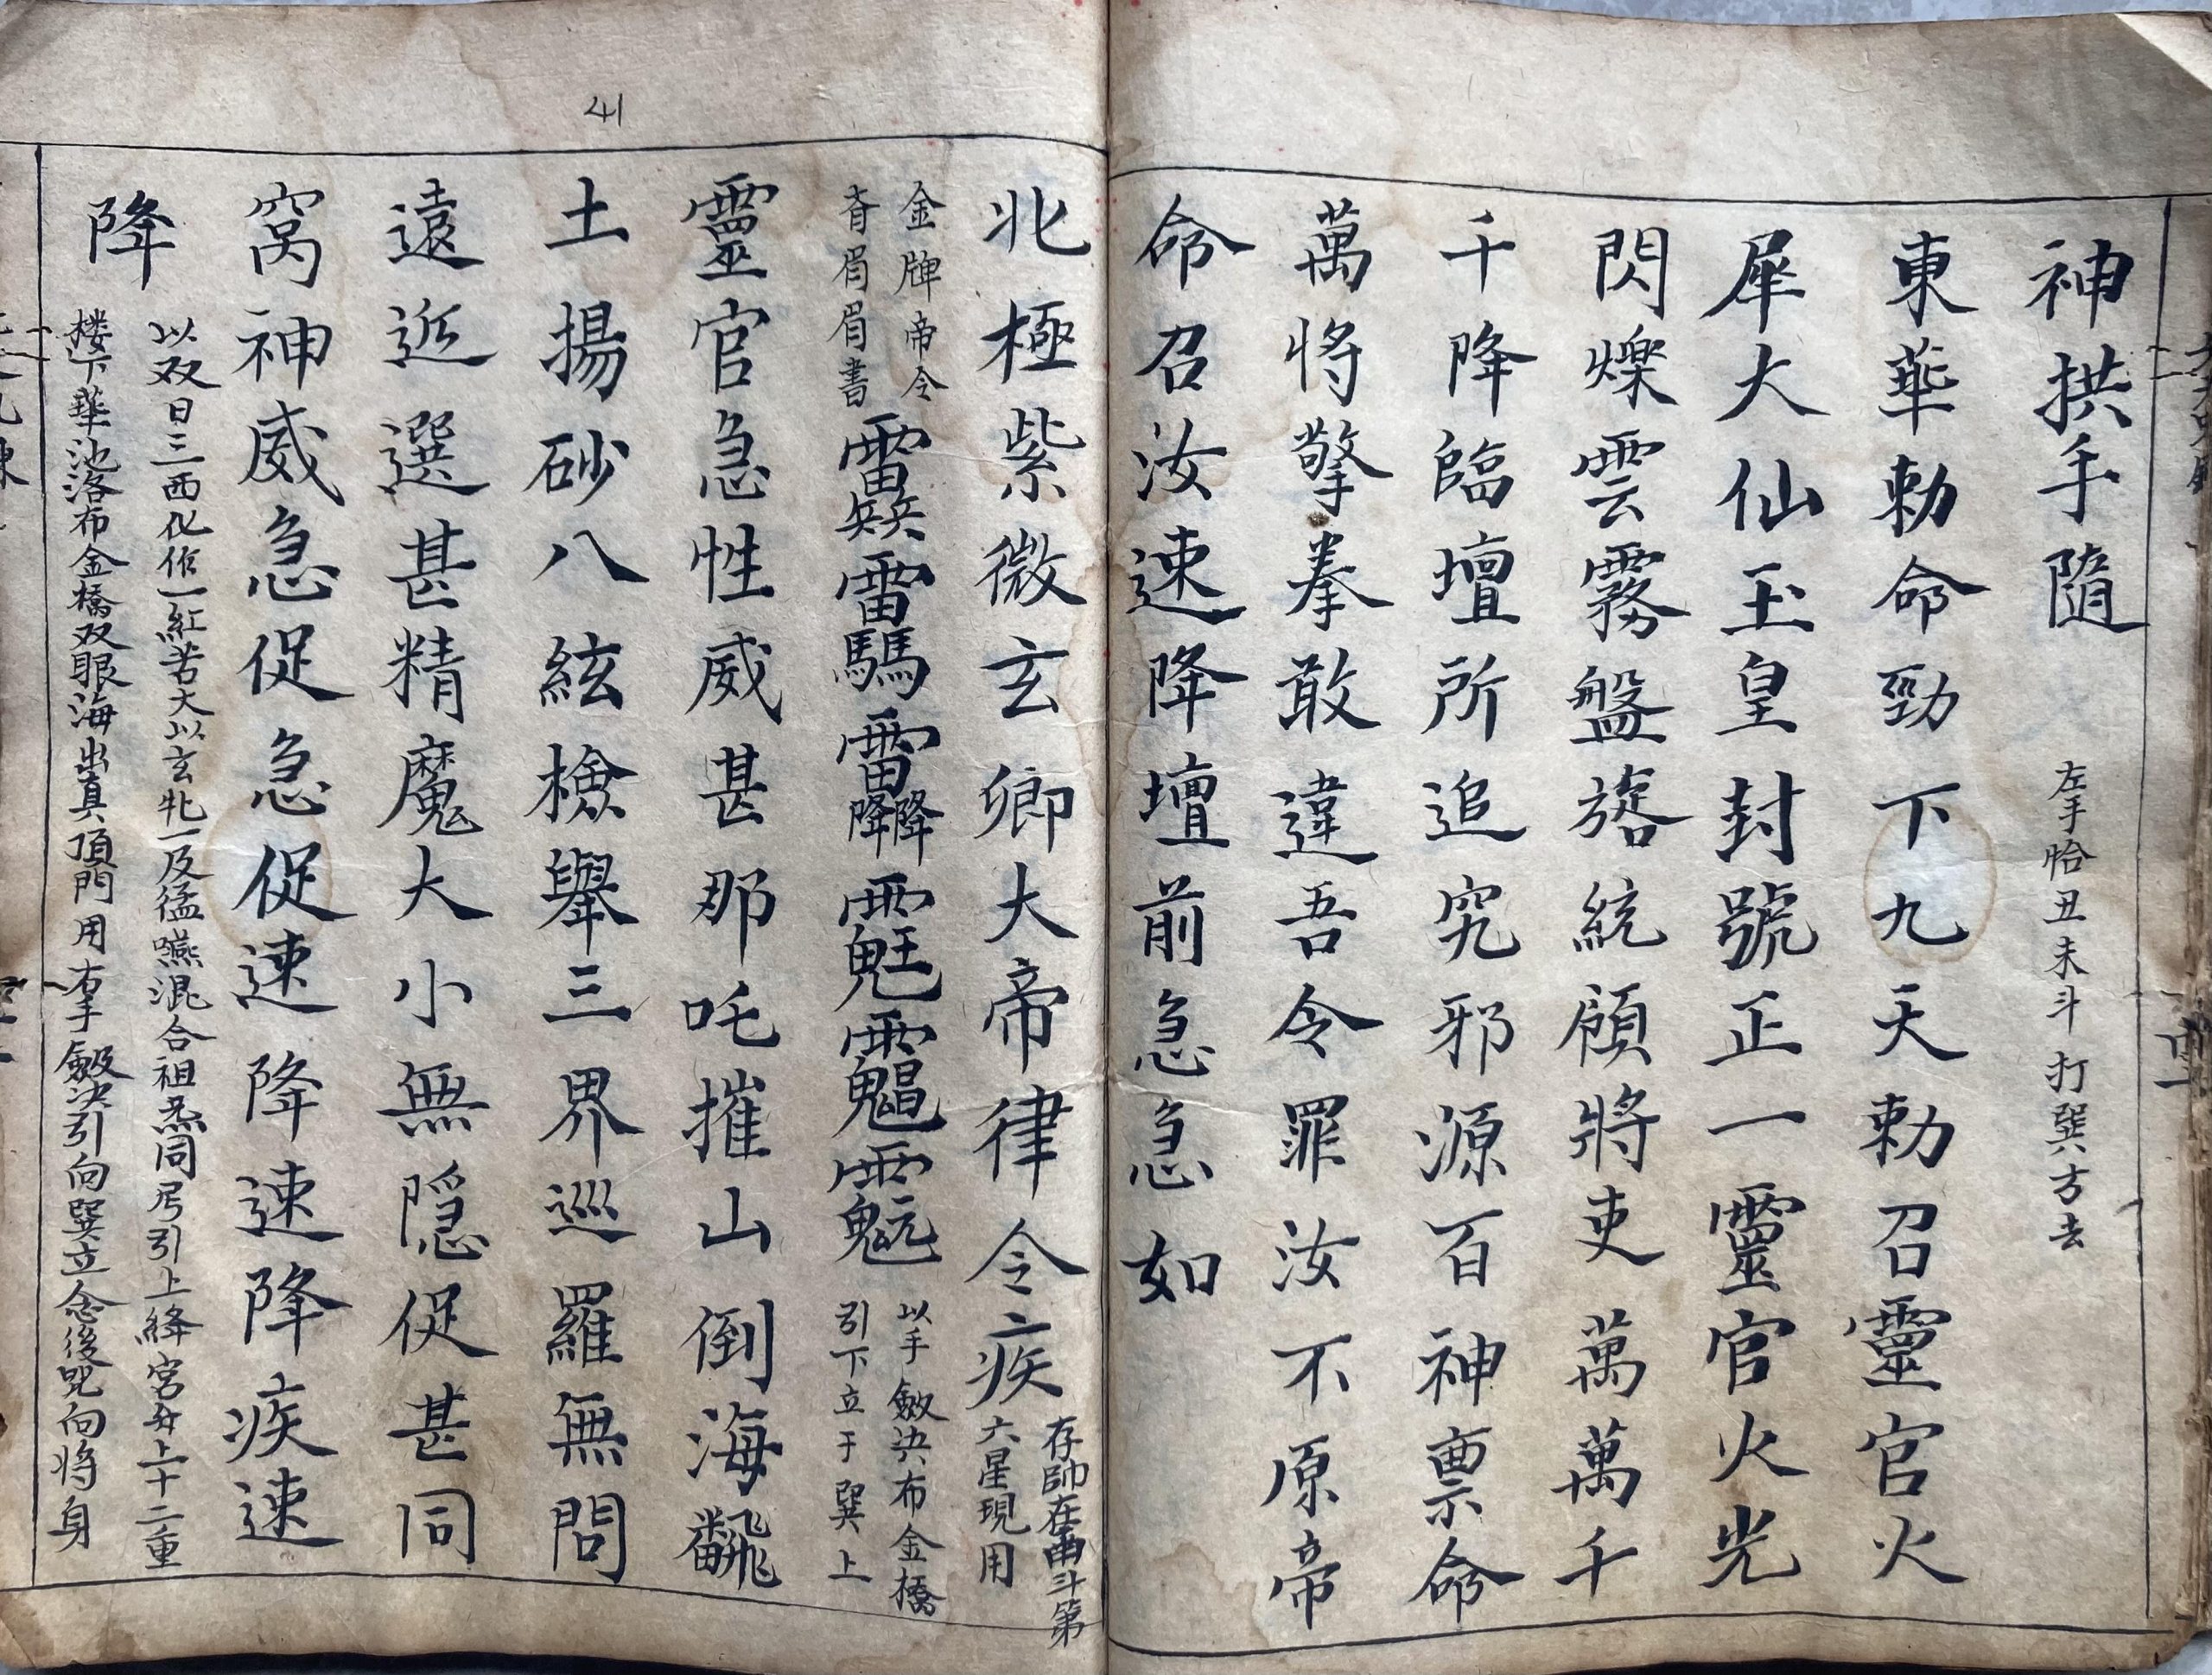 神拱手隨 左手恰丑未斗打巽方去
東華勅命勁下九天勅召靈官火
犀大仙玉皇封號正一靈官火光
閃爍雲霧盤旋統領將吏萬萬千
千降臨壇所追究邪源百神禀命
萬将擎拳敢違吾令罪汝不原帝
命召汝速降壇前急急如
41
北極紫微玄卿大帝律令疾 存帥在南斗第
六星現用
金牌帝令
以手劔决布金橋
引下立于巽上
靈官急性威甚那吒摧山倒海飜
土揚砂八紘檢舉三界巡羅無問
遠近選甚精魔大小無隠促甚同
窩神威急促急促速降速降疾速
降 以双日三西化作一紅若大以玄牝一及猛嚥混合祖炁同 引上絳宮 上十二重
楼下華池落布金橋双眼海出真頂門用右手劔决引向巽立念後咒向将身